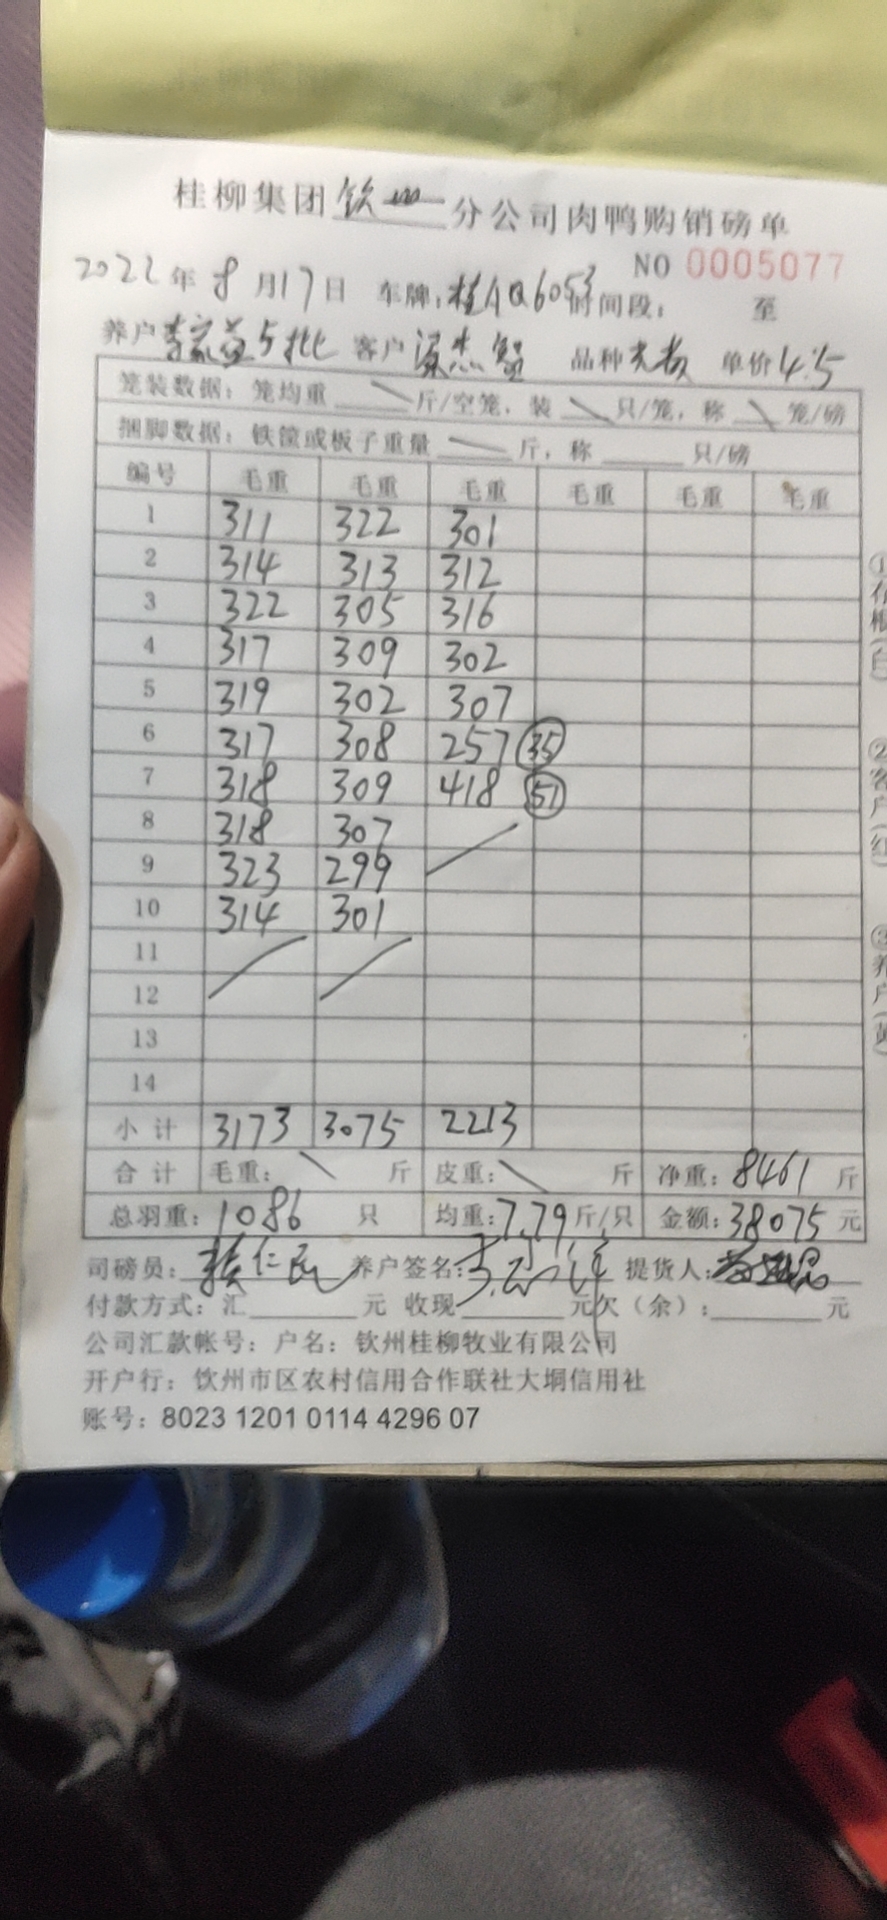 桂柳集团钦州分公司肉鸭购销磅单
NO 0005077
2022年8月17日 车牌:桂AQ6053 时间段: 至
养户 李家益5批 客户 梁杰 品种 单价4.5
笼装数据:笼均重 斤/空笼,装 只/笼,称 笼/磅
捆脚数据:铁筐或板子重量 斤,称 只/磅
编号 毛重 毛重 毛重 毛重 毛重 毛重
1 311 322 301
2 314 313 312
3 322 305 316
4 317 309 302
5 319 302 307
6 317 308 257 35
7 318 309 418 51
8 318 307
9 323 299
10 314 301
11
12
13
14
小计 3173 3075 2213
合计 毛重: 斤 皮重: 斤 净重:8461 斤
总羽重:1086 只 均重:7.79斤/只 金额:38075元
司磅员: 仁 养户签名: 提货人:
付款方式:汇 元 收现 元欠(余): 元
公司汇款帐号:户名:钦州桂柳牧业有限公司
开户行:钦州市区农村信用合作联社大垌信用社
账号:8023 1201 0114 4296 07
①存根(白)
②客户(红)
③养户(黄)